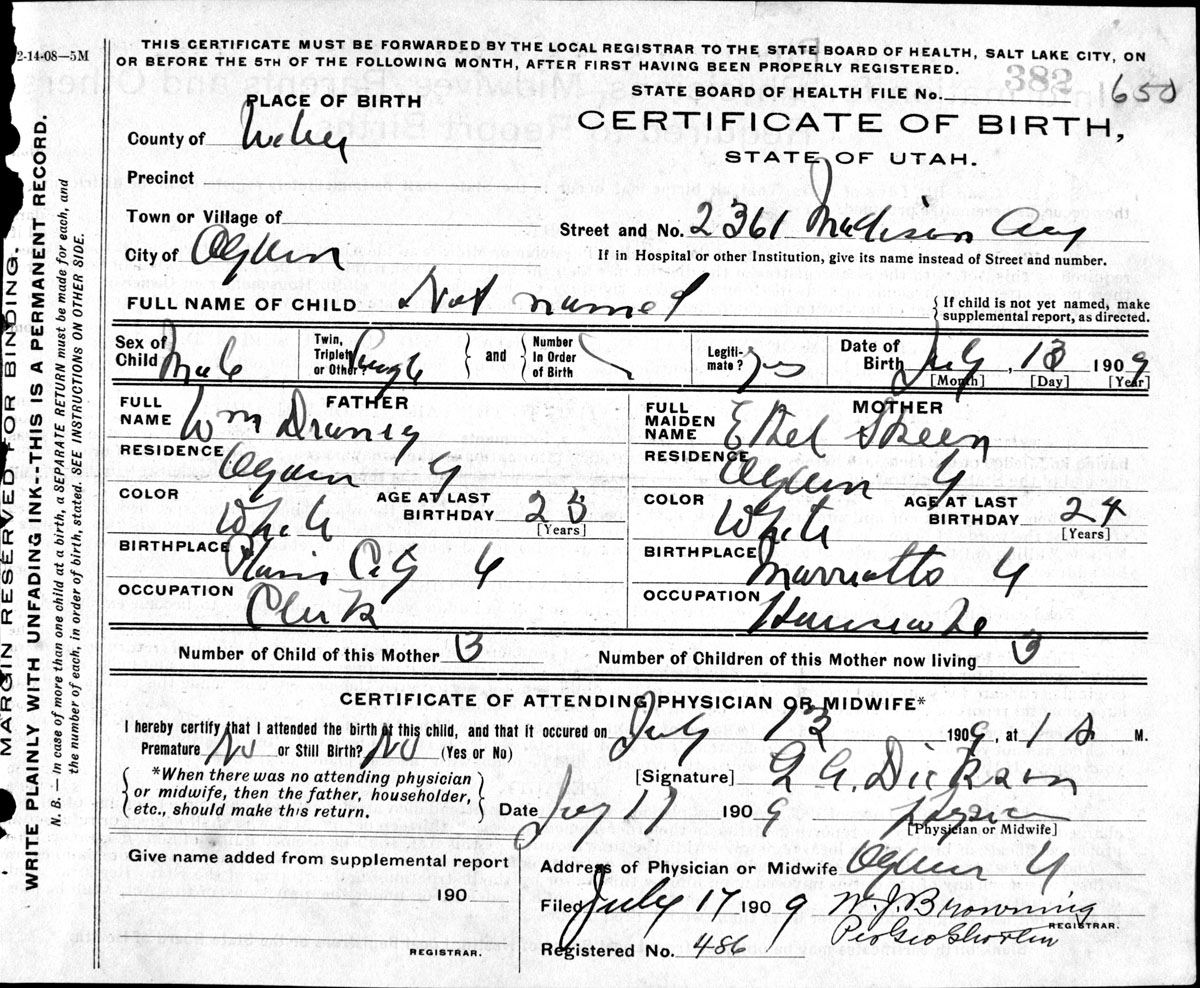 2-14-08—5M
THIS CERTIFICATE MUST BE FORWARDED BY THE LOCAL REGISTRAR TO THE STATE BOARD OF HEALTH, SALT LAKE CITY, ON
OR BEFORE THE 5TH OF THE FOLLOWING MONTH, AFTER FIRST HAVING BEEN PROPERLY REGISTERED.
382
STATE BOARD OF HEALTH FILE No. 650
PLACE OF BIRTH
CERTIFICATE OF BIRTH,
STATE OF UTAH.
County of Weber
Precinct
Town or Village of
Street and No. 2361 Madison Ave
City of Ogden
If in Hospital or other Institution, give its name instead of Street and number.
FULL NAME OF CHILD Not named
If child is not yet named, make
supplemental report, as directed.
Sex of
Child Male
Twin,
Triplet
or Other Single
and
Number
In Order
of Birth
Legiti-
mate? yes
Date of
Birth July, 13 1909
[Month] [Day] [Year]
FATHER
FULL
NAME Wm Draney
RESIDENCE Ogden U
COLOR White
AGE AT LAST
BIRTHDAY 23
[Years]
BIRTHPLACE Plain City U
OCCUPATION Clerk
MOTHER
FULL
MAIDEN
NAME Ethel Skeen
RESIDENCE Ogden U
COLOR White
AGE AT LAST
BIRTHDAY 24
[Years]
BIRTHPLACE Marriotts U
OCCUPATION Housewife
Number of Child of this Mother 3
Number of Children of this Mother now living 3
CERTIFICATE OF ATTENDING PHYSICIAN OR MIDWIFE*
I hereby certify that I attended the birth of this child, and that it occured on July 13 1909, at 1 a M.
Premature No or Still Birth? No (Yes or No)
*When there was no attending physician
or midwife, then the father, householder,
etc., should make this return.
[Signature] Dickson
Date July 17 1909
[Physician or Midwife]
Give name added from supplemental report
190
REGISTRAR.
Address of Physician or Midwife Ogden U
Filed July 17 1909 W. J. Browning
REGISTRAR.
Per Geo Shorten
Registered No. 486
MARGIN RESERVED FOR BINDING.
WRITE PLAINLY WITH UNFADING INK--THIS IS A PERMANENT RECORD.
N. B. — In case of more than one child at a birth, a SEPARATE RETURN must be made for each, and
the number of each, in order of birth, stated. SEE INSTRUCTIONS ON OTHER SIDE.